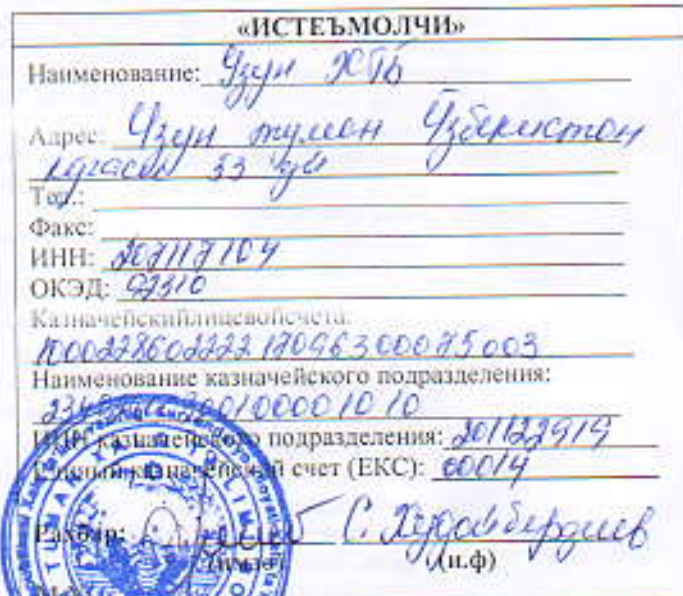 «ИСТЕЪМОЛЧИ»
Наименование: Узун ХТБ
Адрес: Узун туман Ўзбекистон
кўчаси 33 уй
Тел.:
Факс:
ИНН: 207117104
ОКЭД: 92310
Казначейскийлицевойсчета:
100022860222217096300075003
Наименование казначейского подразделения:
ИНН казначейского подразделения: 201122919
Единый казначейский счет (ЕКС): 00014
Раҳбар: С. Худойбердиев
(имзо) (и.ф)